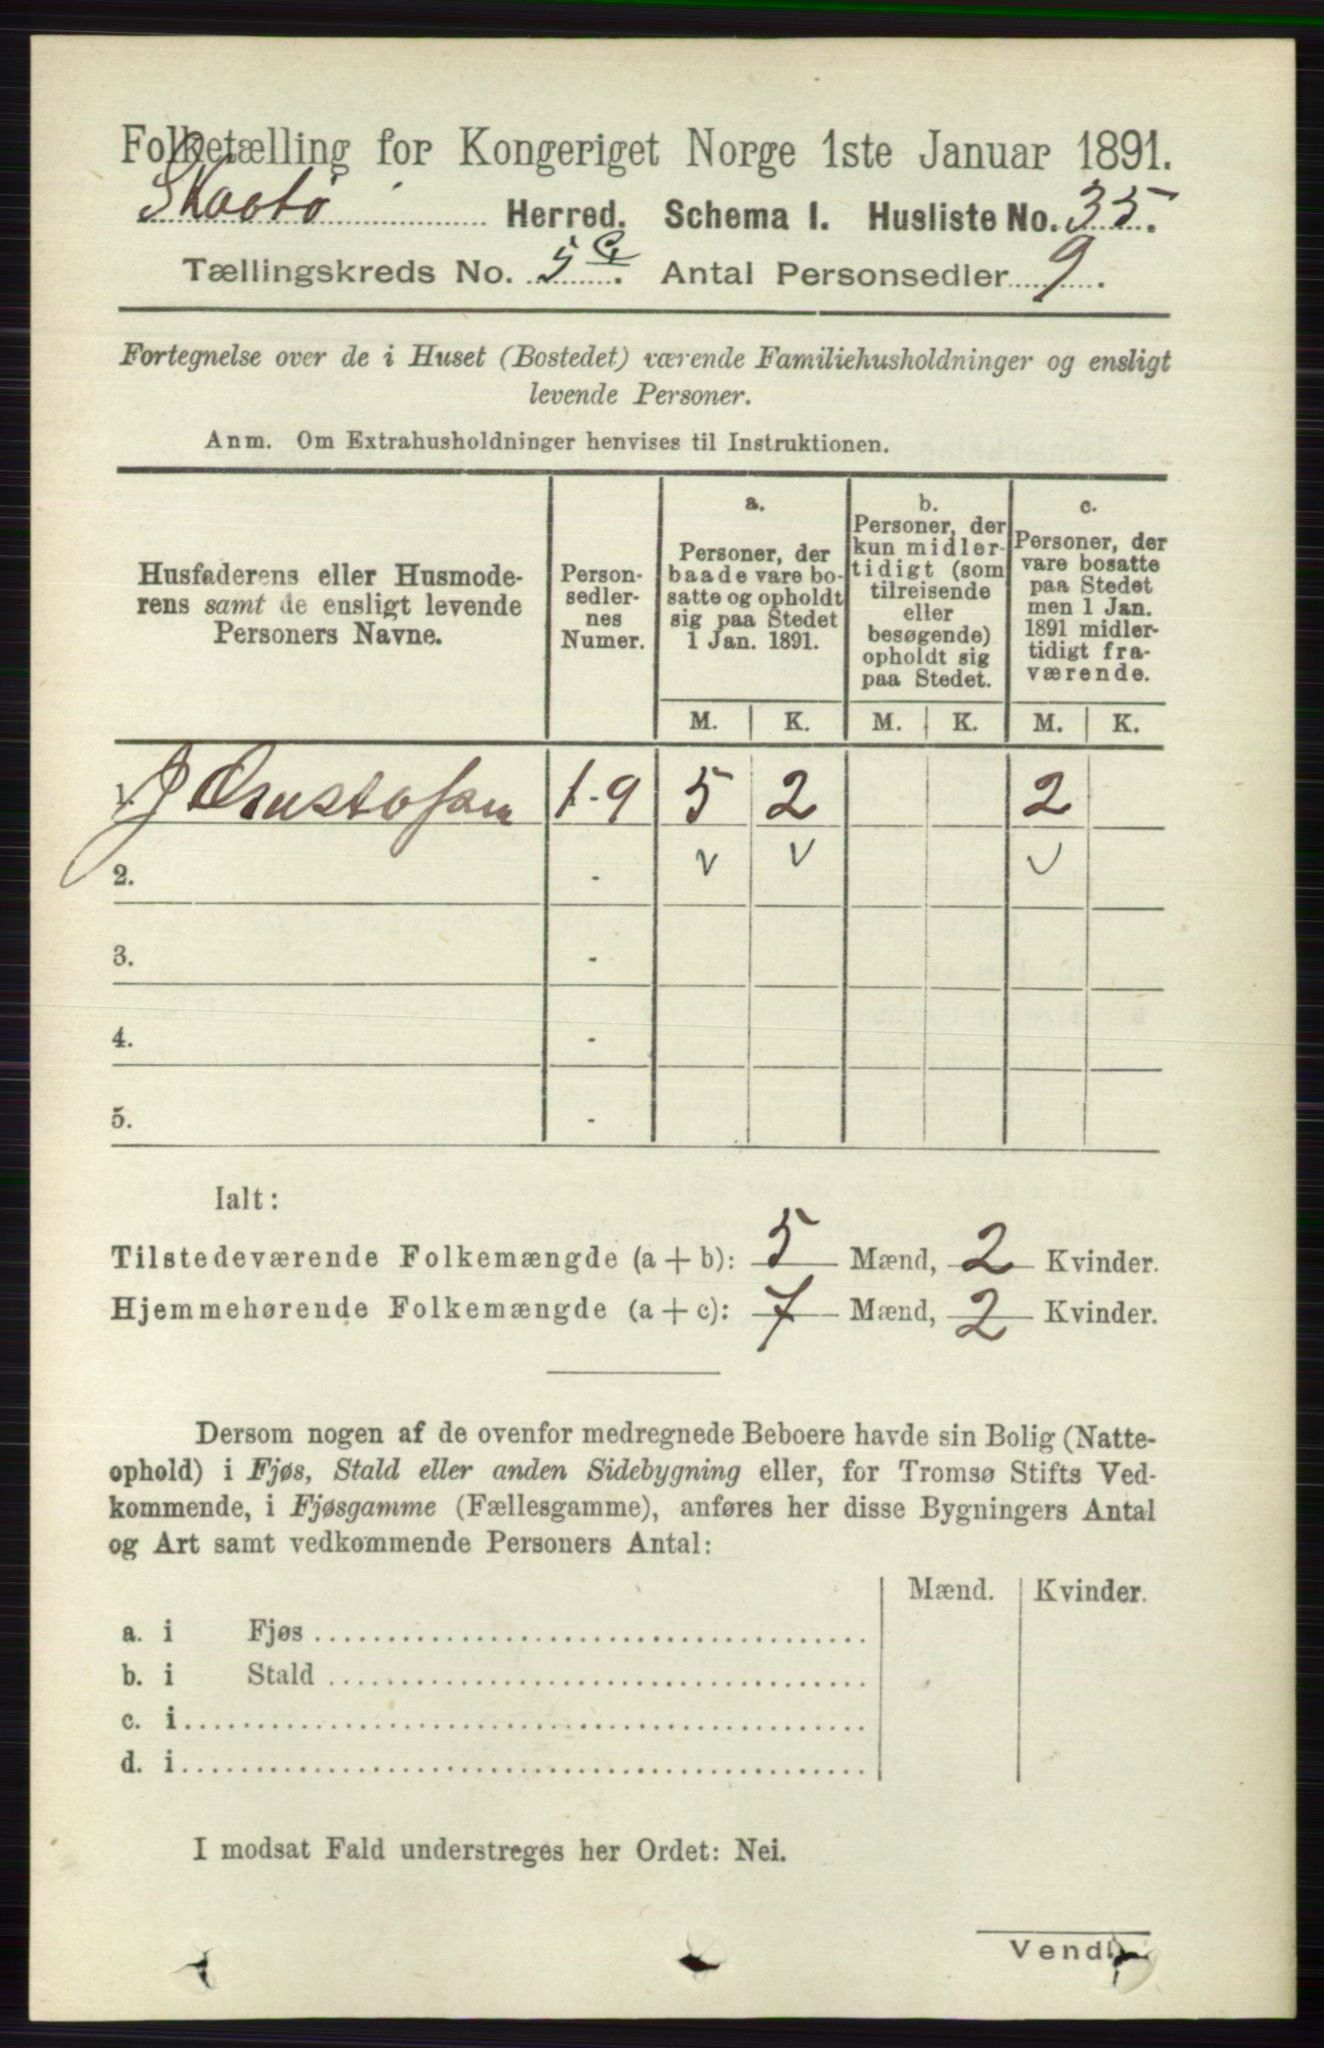 Folketælling for Kongeriget Norge 1ste Januar 1891.
Skaatø Herred. Schema I. Husliste No. 35.
Tællingskreds No. 5 . Antal Personsedler 9 .
Fortegnelse over de i Huset (Bostedet) værende Familiehusholdninger og ensligt
levende Personer.
Anm. Om Extrahusholdninger henvises til Instruktionen.
Husfaderens eller Husmode-
rens samt de ensligt levende
Personers Navne.
Person-
sedler-
nes
Numer.
a.
Personer, der
baade vare bo-
satte og opholdt
sig paa Stedet
1 Jan. 1891.
b.
Personer, der
kun midler-
tidigt (som
tilreisende
eller
besøgende)
opholdt sig
paa Stedet.
c.
Personer, der
vare bosatte
paa Stedet
men 1 Jan.
1891 midler-
tidigt fra-
værende.
M. K. M. K. M. K.
1. J 1-9 5 2 2
2. - v v v
3. -
4. -
5. -
Ialt:
Tilstedeværende Folkemængde (a + b): 5 Mænd, 2 Kvinder.
Hjemmehørende Folkemængde (a + c): 7 Mænd, 2 Kvinder.
Dersom nogen af de ovenfor medregnede Beboere havde sin Bolig (Natte-
ophold) i Fjøs, Stald eller anden Sidebygning eller, for Tromsø Stifts Ved-
kommende, i Fjøsgamme (Fællesgamme), anføres her disse Bygningers Antal
og Art samt vedkommende Personers Antal:
Mænd. Kvinder.
a. i Fjøs
b. i Stald
c. i
d. i
I modsat Fald understreges her Ordet: Nei.